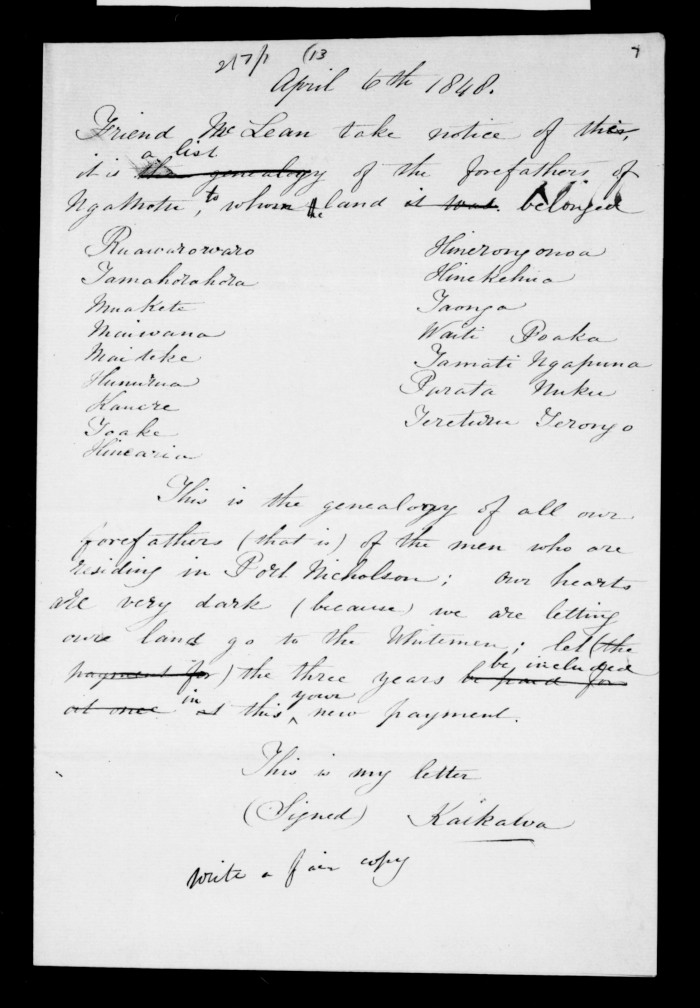 2/7/1 (13
7
April 6th 1848.
Friend McLean take notice of this,
a list
it is the genealogy of the forefathers of
NgaMotu, to whom the land it was belonged
Ruawarowaro
Tamahorohora
Muakete
Maiwana
Maiteke
Hunurua
Kauere
Toake
Hinearia
Hinerongonoa
Hinekehua
Taonga
Waiti Poaka
Tamati Ngapuna
Parata Nuku
Tereturu Terongo
This is the genealogy of all our
forefathers (that is) of the men who are
residing in Port Nicholson; our hearts
are very dark (because) we are letting
our land go to the Whitemen; let (the
be included
payment for) the three years be paid for
in your
at once at this new payment.
This is my letter
(Signed) Kaikawa
write a fair copy